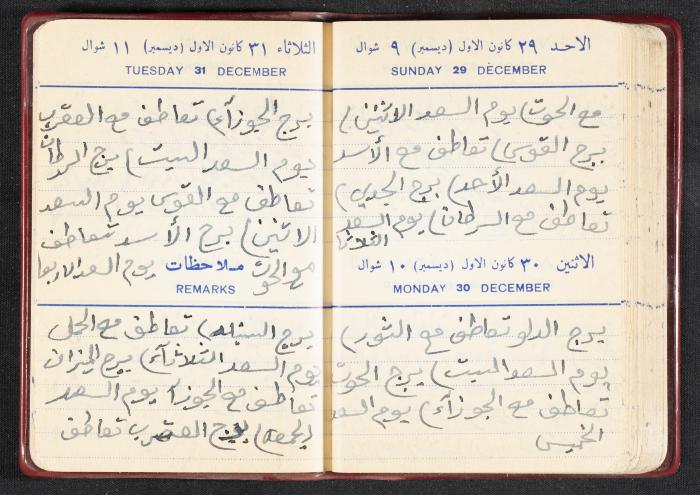 الاحد ٢٩ كانون الاول (ديسمبر) ٩ شوال
SUNDAY 29 DECEMBER
مع الحوت) يوم السعد الاثنين)
برج القوس) تعاطف مع الأسد
يوم السعد الأحد) برج الجدي)
تعاطف مع السرطان) يوم السعد
الثلاثا
الاثنين ٣٠ كانون الاول (ديسمبر) ١٠ شوال
MONDAY 30 DECEMBER
برج الدلو تعاطف مع الثور)
يوم السعد السبت) برج الحوت
تعاطف مع الجوزآء) يوم السعد
الخميس
الثلاثاء ٣١ كانون الاول (ديسمبر) ١١ شوال
TUESDAY 31 DECEMBER
برج الجوزآء) تعاطف مع العقرب
يوم السعد السبت) برج السرطان
تعاطف مع القوس يوم السعد
الاثنين) برج الأسد تعاطف
مع الحوت يوم السعد الاربعا
ملاحظات
REMARKS
برج السنبله) تعاطف مع الحمل
يوم السعد الثلاثآء) برج الميزان
تعاطف مع الجوزآء يوم السعد
الجمعه) برج العقرب تعاطف